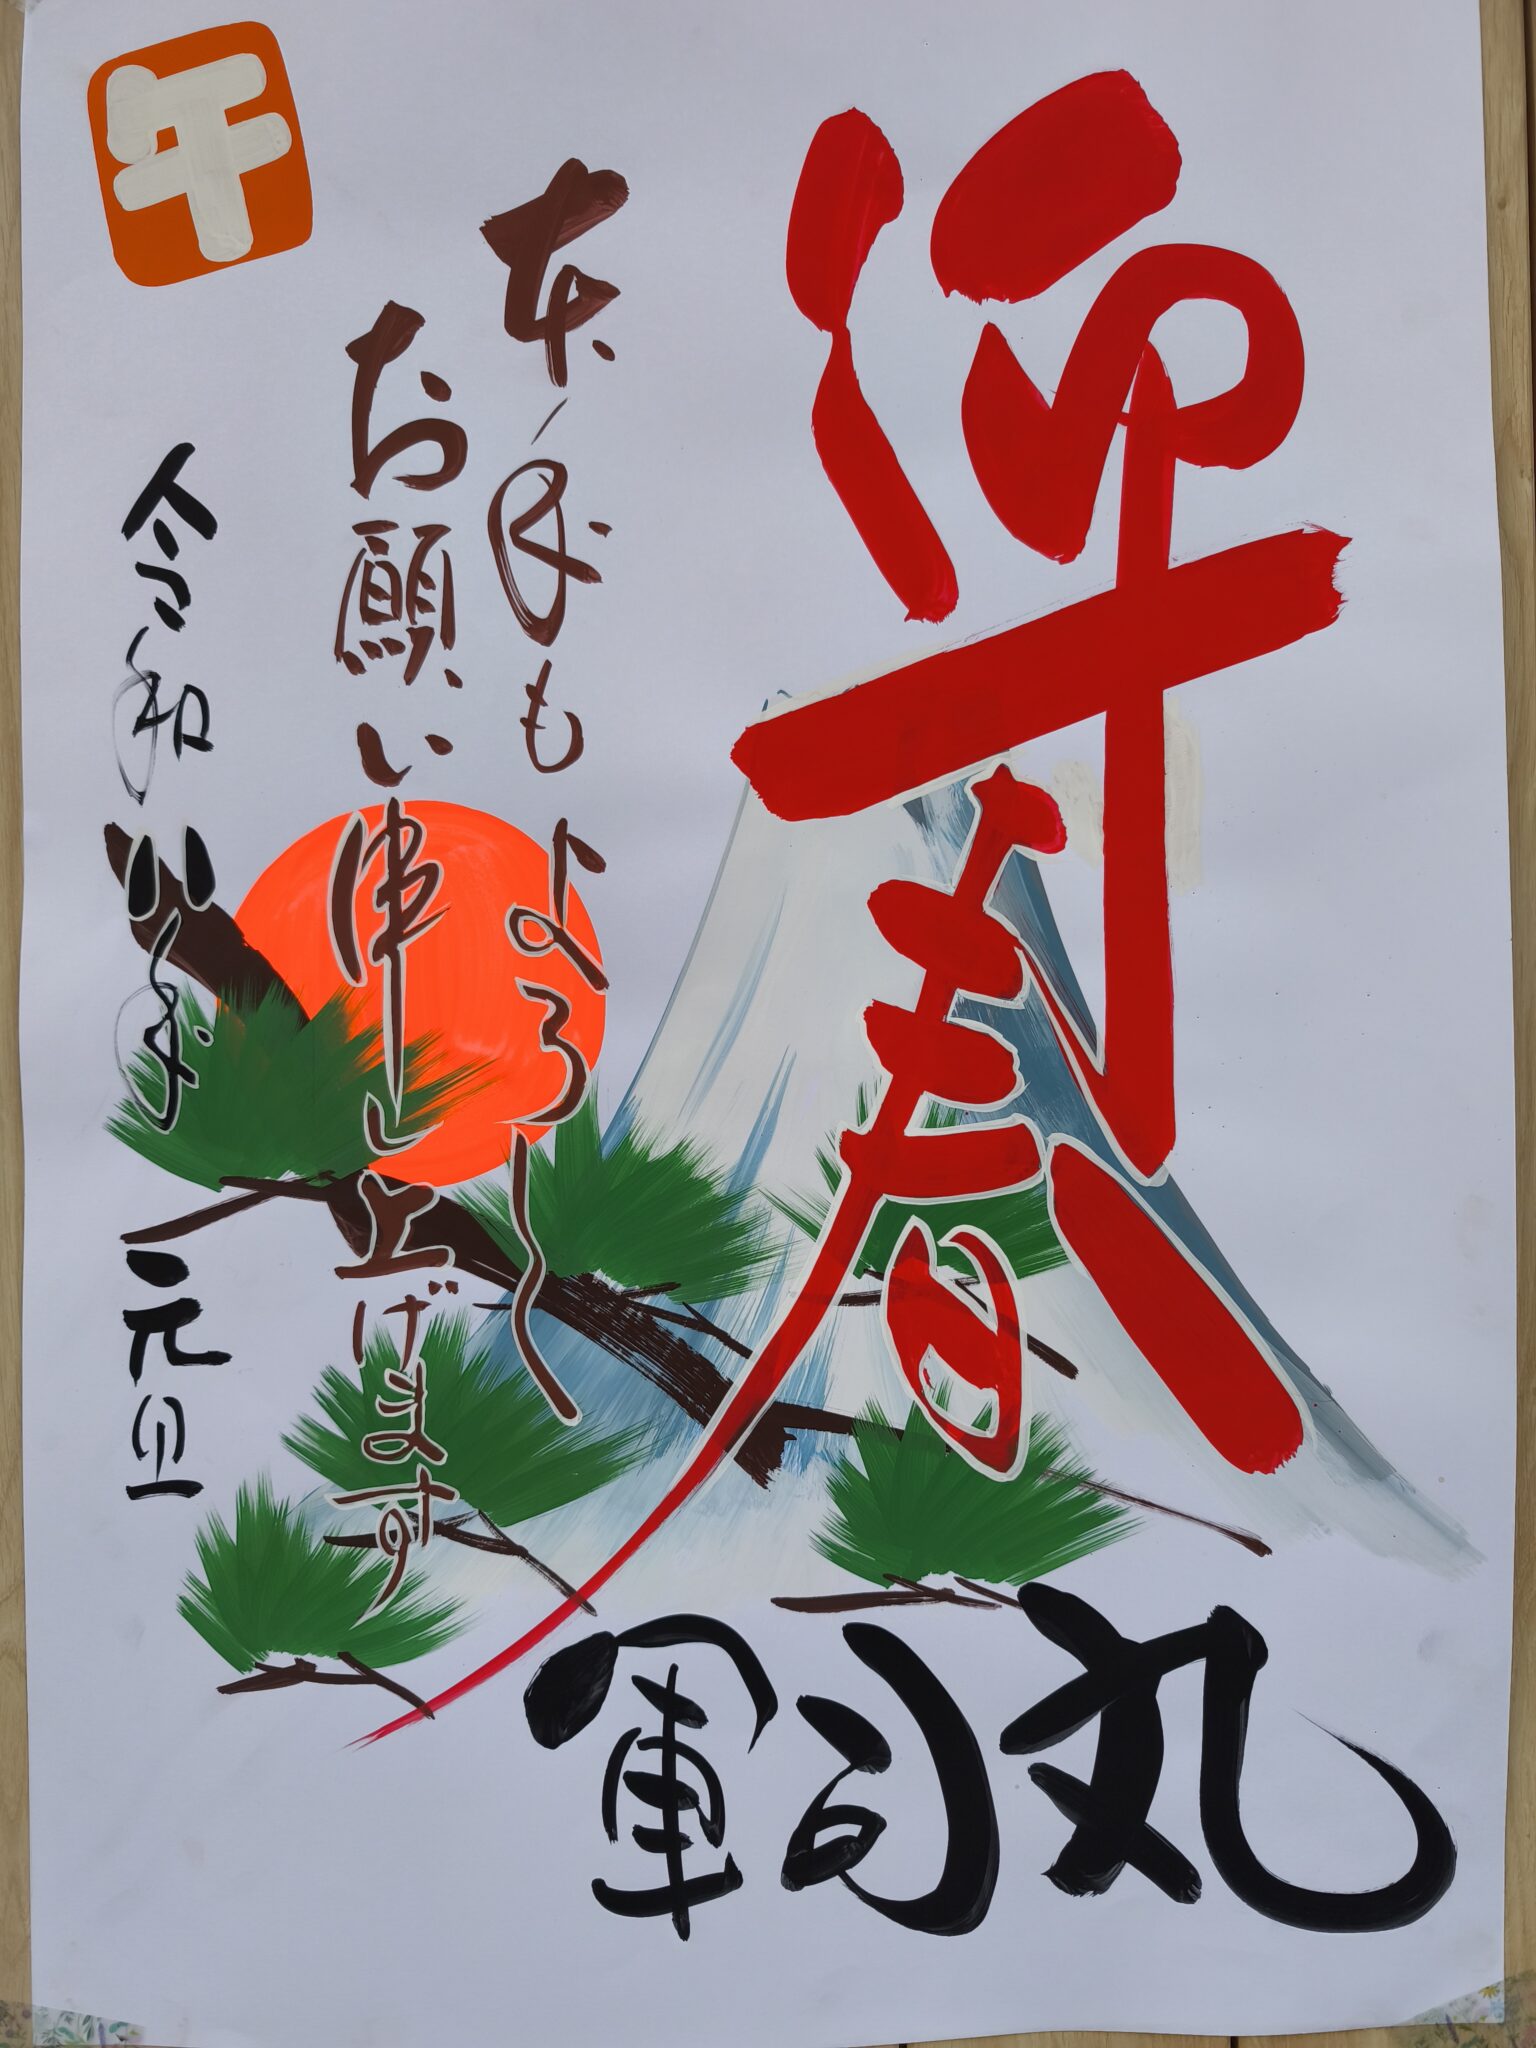 迎春
本年もよろしく
お願い申し上げます
令和八年 元旦
午
軍司丸